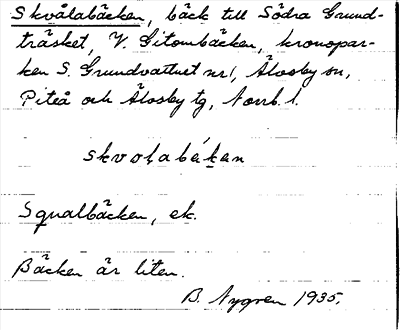 Skvålabäcken, bäck till Södra Grund-
träsket, V. Gitombäcken, kronopar-
ken S. Grundvattnet nr 1, Älvsby sn,
Piteå och Älvsby tg, Norrb. l.
skvoḷabẹ́ḳan
Squalbäcken, ek.
Bäcken är liten.
B. Nygren 1935.